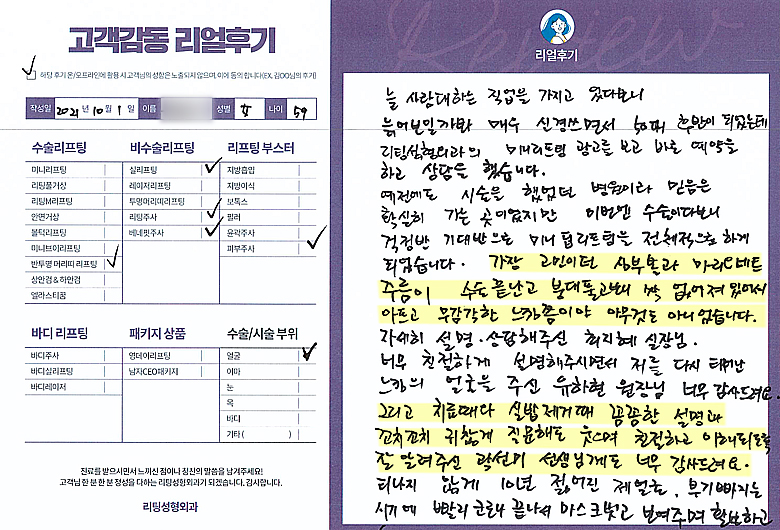 고객감동 리얼후기
해당 후기 온/오프라인에 활용 시 고객님의 성함은 노출되지 않으며, 이에 동의 합니다(EX. 김OO님의 후기)
작성일 2021 년 10 월 1 일 이름 성별 女 나이 59
수술리프팅
미니리프팅
리팅풀거상
리팅M리프팅
안면거상
볼턱리프팅
미니브이리프팅
반투명 머리띠 리프팅
상안검 & 하안검
엘라스티꿈
비수술리프팅
실리프팅
레이저리프팅
투명머리띠리프팅
리팅주사
베네핏주사
리프트 부스터
지방흡입
지방이식
보톡스
필러
윤곽주사
피부주사
바디 리프팅
바디주사
바디실리프팅
바디레이저
패키지 상품
영데이리프팅
남자CEO패키지
수술/시술 부위
얼굴
이마
눈
목
바디
기타 ( )
진료를 받으시면서 느끼신 점이나 칭찬의 말씀을 남겨주세요!
고객님 한 분 한 분 정성을 다하는 리팅성형외과가 되겠습니다. 감사합니다.
리팅성형외과
Review
리얼후기
늘 사람대하는 직업을 가지고 있다보니
늙어보일까봐 매우 신경쓰면서 50대 후반이 되었는데
리팅성형외과의 미니리프팅 광고를 보고 바로 예약을
하고 상담을 했습니다.
예전에도 시술을 했었던 병원이라 믿음은
확실히 가는 곳이었지만 이번엔 수술이다보니
걱정반 기대반으로 미니 팁리프팅을 전체적으로 하게
되었습니다. 가장 고민이던 심부볼과 마리오네트
주름이 수술 끝나고 붕대풀고보니 싹 없어져 있어서
아프고 무감각한 느낌쯤이야 아무것도 아니었습니다.
자세히 설명·상담해주신 허지혜 실장님.
너무 친절하게 설명해주시면서 저를 다시 태어난
느낌의 얼굴을 주신 유하현 원장님 너무 감사드려요.
그리고 치료때마다 실밥제거때 꼼꼼한 설명과
꼬치꼬치 귀찮게 질문해도 웃으며 친절하고 이해되도록
잘 알려주신 곽선미 선생님께도 너무 감사드려요.
티나지 않게 10년 젊어진 제얼굴. 부기빠지는
시기에 빨리 코로나 끝나서 마스크벗고 보여주며 활보하고